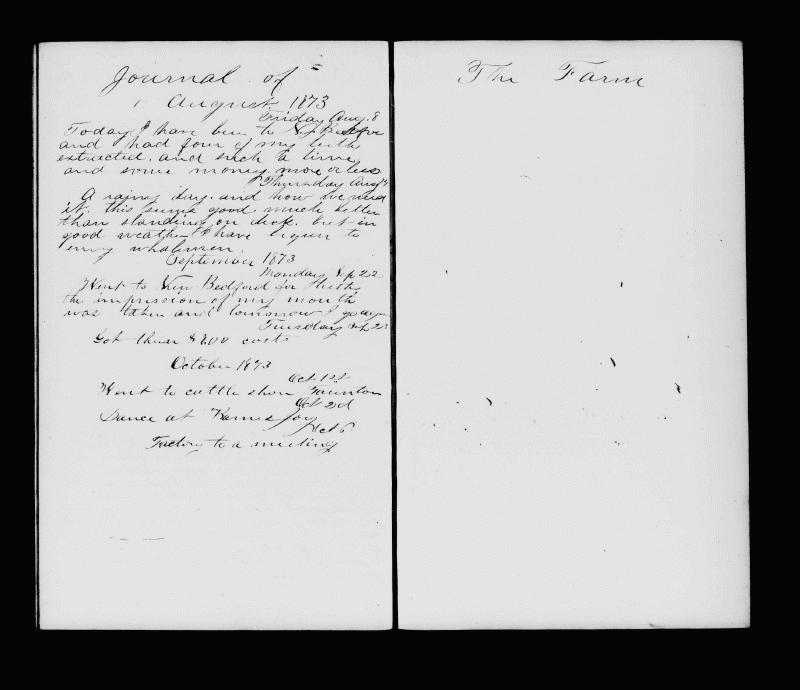 Journal of
August 1873
Friday Aug. 8
Today I have been to
and had four of my teeth
extracted. and such a time,
and some money more or less
Thursday Aug
A rainy day. and how we need
it. this seems good. much better
than standing on deck. but in
good weather I have begun to
envy whalemen.
September 1873
Monday Sep 22
Went to New Bedford for teeth,
the impression of my mouth
was taken and tomorrow I go again
Tuesday Sep 23
Got them $ 8.00 costs
October 1873
Oct 1st
Went to cattle show Taunton
Oct 2d
Dance at
Oct 6
Factory to a meeting
The Farm